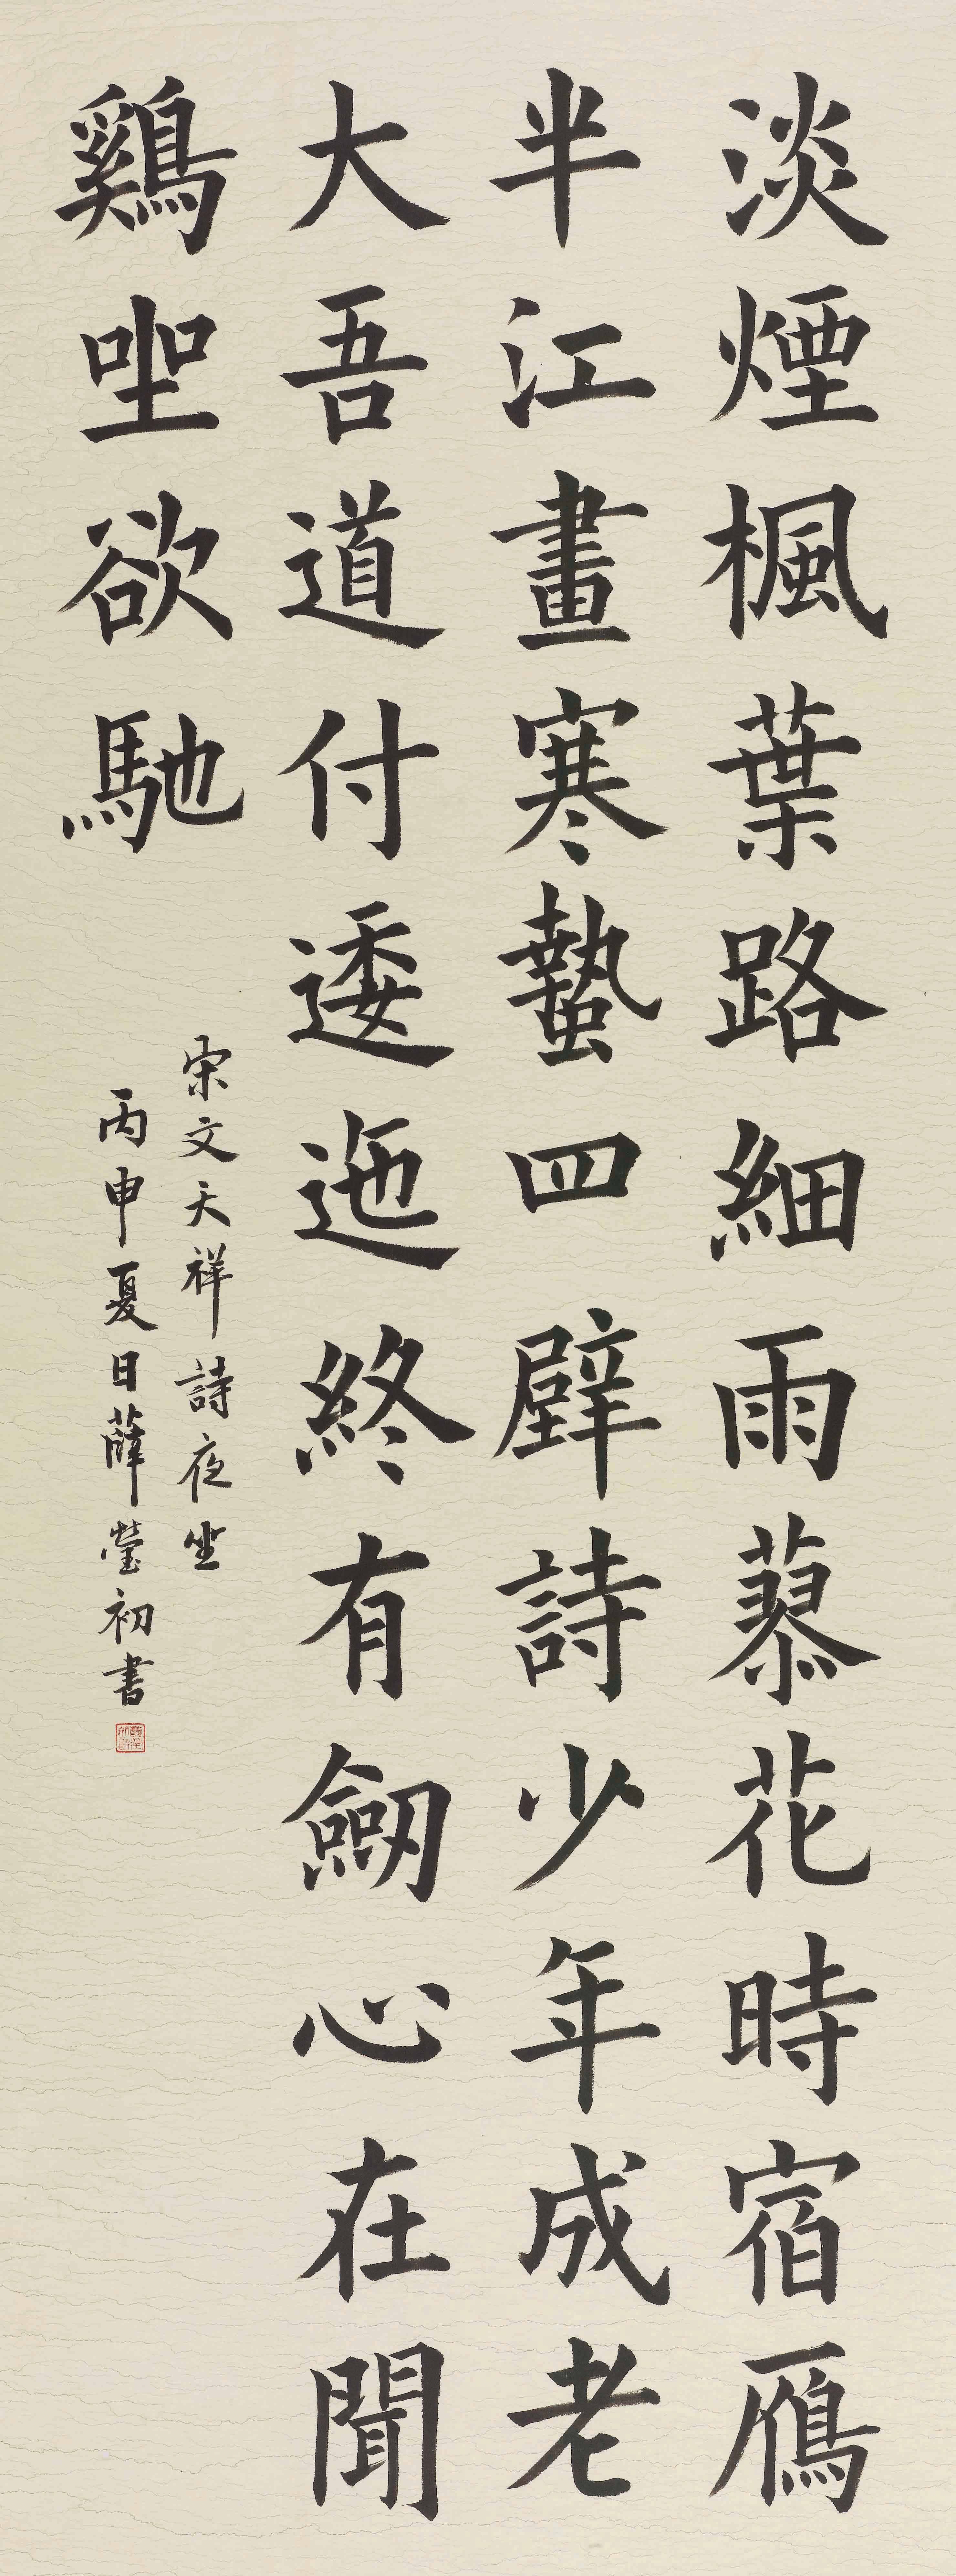 淡煙楓葉路細雨蓼花時宿鴈
半江畫寒蟄四壁詩少年成老
大吾道付逶迤終有劒心在聞
鷄坐欲馳
宋文天祥詩夜坐
丙申夏日薛瑩初書